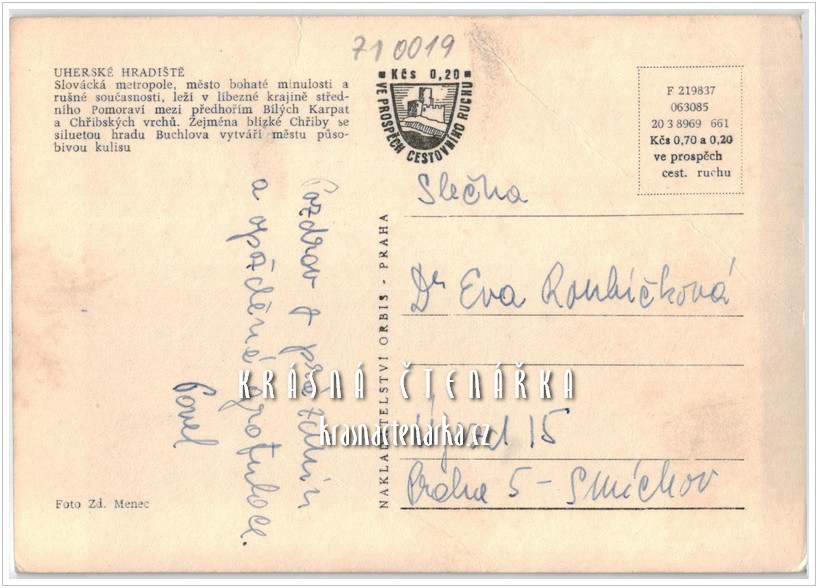 71 0019
UHERSKÉ HRADIŠTĚ
Slovácká metropole, město bohaté minulosti a
rušné současnosti, leží v líbezné krajině střed-
ního Pomoraví mezi předhořím Bílých Karpat
a Chřibských vrchů. Zejména blízké Chřiby se
siluetou hradu Buchlova vytváří městu půso-
bivou kulisu
Kčs 0,20
VE PROSPĚCH CESTOVNÍHO RUCHU
F 219837
063085
20 3 8969 661
Kčs 0,70 a 0,20
ve prospěch
cest. ruchu
Pozdrav z prázdnin
a opožděné gratulace.
Pavel
NAKLADATELSTVÍ ORBIS - PRAHA
Slečna
Dr Eva Roubíčková
15
Praha 5 - Smíchov
KRÁSNÁ ČTENÁŘKA
krasnactenarka.cz
Foto Zd. Menec